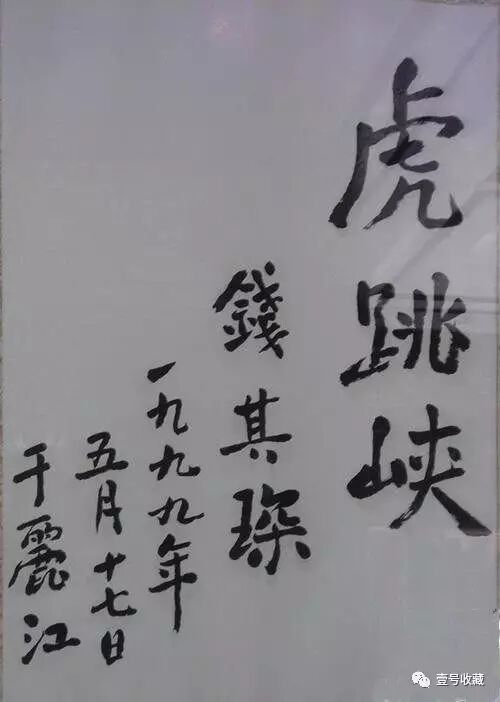 虎跳峡
錢其琛
一九九九年
五月十七日
于麗江
壹号收藏